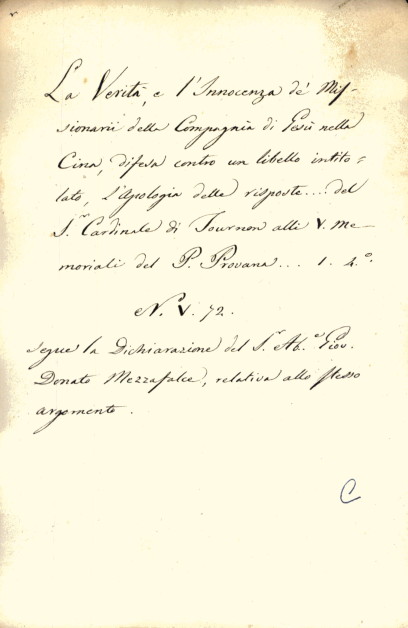 La Verità, e l'Innocenza de' Mis-
sionarii della Compagnia di Gesù nella
Cina, difesa contro un libello intito=
lato, L'Apologia delle risposte.... del
S.r Cardinale di Tournon alli V. Me-
moriali del P. Provana... 1. 4.º
N. V. 72.
segue la Dichiarazione del S.r Ab.e Giov.
Donato Mezzafalce, relativa allo stesso
argomento.
C